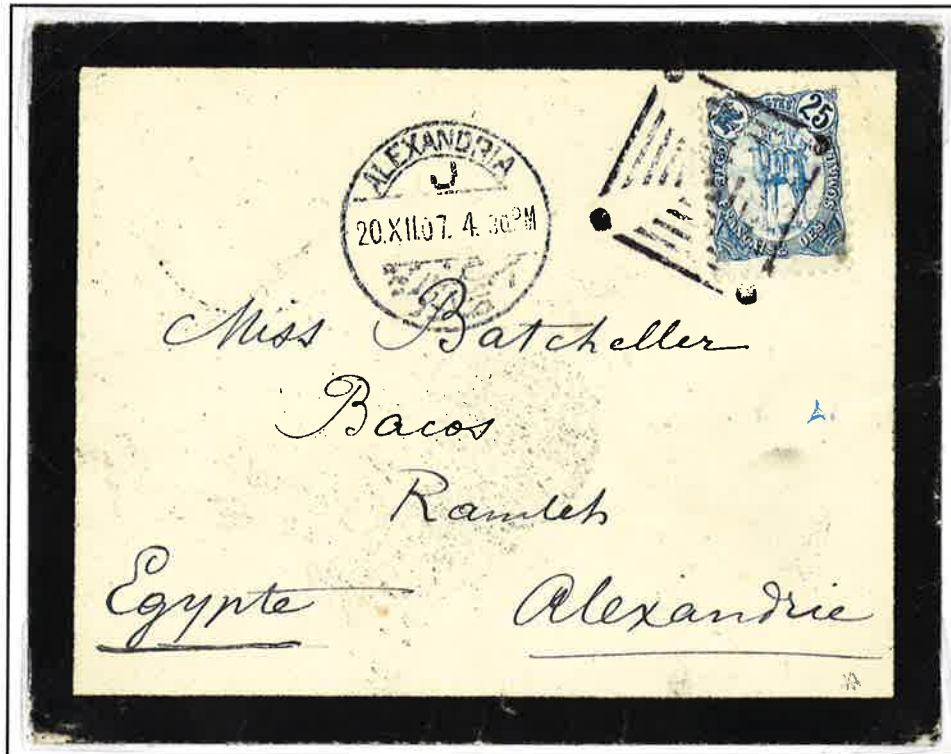 ALEXANDRIA
J
20.XII.07. 4. 30 PM
25
POSTES
Miss Batcheller
Bacos
Ramleh
Egypte Alexandrie